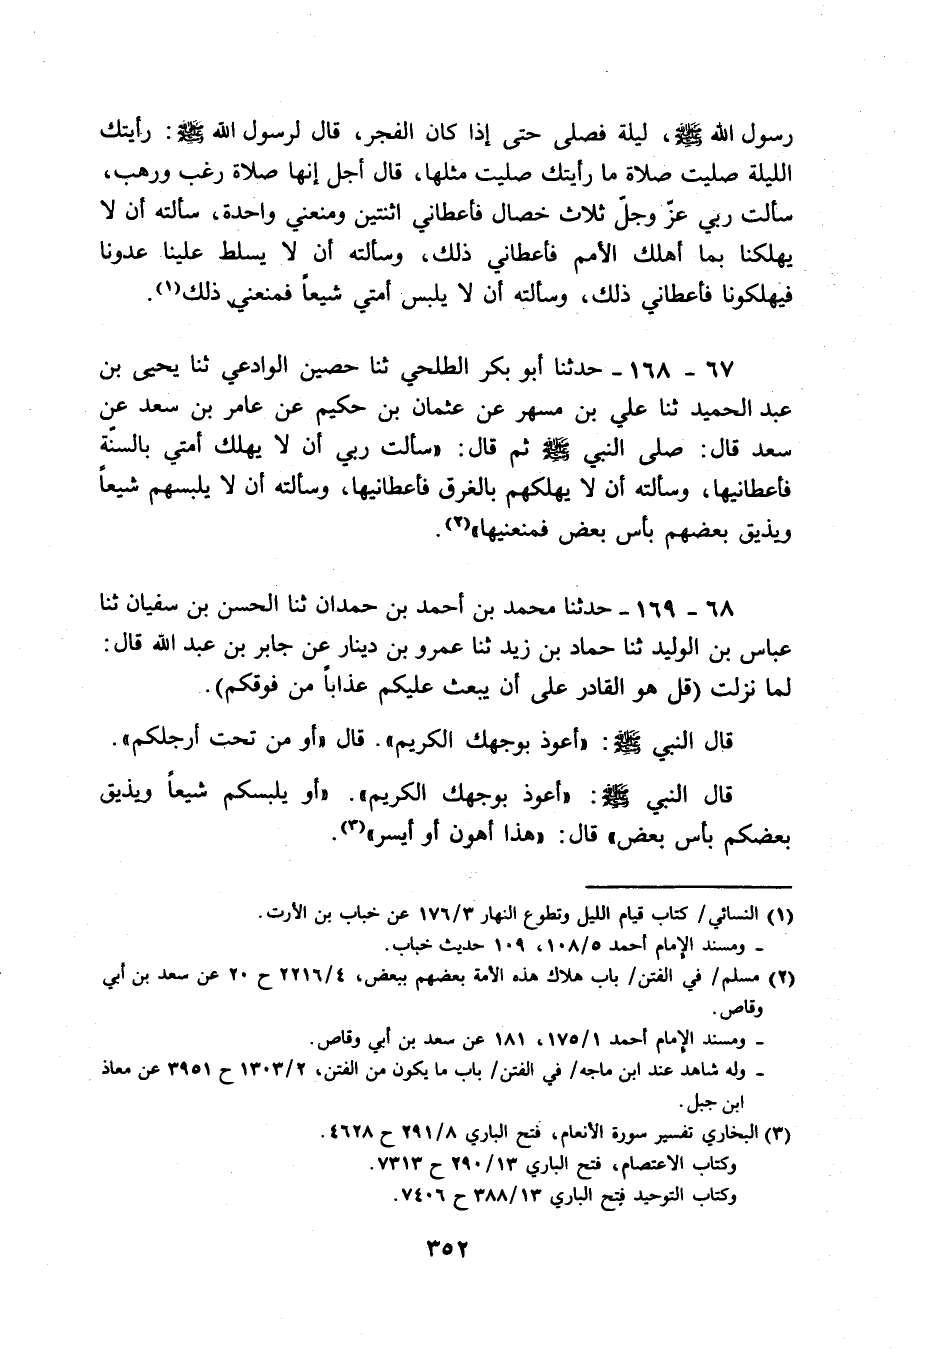 رسول الله ﷺ، ليلة فصلى حتى إذا كان الفجر، قال لرسول الله ﷺ: رأيتك
الليلة صليت صلاة ما رأيتك صليت مثلها، قال أجل إنها صلاة رغب ورهب،
سألت ربي عزّ وجلّ ثلاث خصال فأعطاني اثنتين ومنعني واحدة، سألته أن لا
يهلكنا بما أهلك الأمم فأعطاني ذلك، وسألته أن لا يسلط علينا عدونا
فيهلكونا فأعطاني ذلك، وسألته أن لا يلبس أمتي شيعاً فمنعني ذلك(١).
٦٧ - ١٦٨ - حدثنا أبو بكر الطلحي ثنا حصين الوادعي ثنا يحيى بن
عبد الحميد ثنا علي بن مسهر عن عثمان بن حكيم عن عامر بن سعد عن
سعد قال: صلى النبي ﷺ ثم قال: «سألت ربي أن لا يهلك أمتي بالسنّة
فأعطانيها، وسألته أن لا يهلكهم بالغرق فأعطانيها، وسألته أن لا يلبسهم شيعاً
ويذيق بعضهم بأس بعض فمنعنيها»(٢).
٦٨ - ١٦٩ - حدثنا محمد بن أحمد بن حمدان ثنا الحسن بن سفيان ثنا
عباس بن الوليد ثنا حماد بن زيد ثنا عمرو بن دينار عن جابر بن عبد الله قال:
لما نزلت (قل هو القادر على أن يبعث عليكم عذاباً من فوقكم).
قال النبي ﷺ: «أعوذ بوجهك الكريم». قال «أو من تحت أرجلكم».
قال النبي ﷺ: «أعوذ بوجهك الكريم». «أو يلبسكم شيعاً ويذيق
بعضكم بأس بعض» قال: «هذا أهون أو أيسر»(٣).
(١) النسائي/ كتاب قيام الليل وتطوع النهار ١٧٦/٣ عن خباب بن الأرت.
- ومسند الإمام أحمد ١٠٨/٥، ١٠٩ حديث خباب.
(٢) مسلم/ في الفتن/ باب هلاك هذه الأمة بعضهم ببعض، ٢٢١٦/٤ ح ٢٠ عن سعد بن أبي
وقاص.
- ومسند الإمام أحمد ١٧٥/١، ١٨١ عن سعد بن أبي وقاص.
- وله شاهد عند ابن ماجه/ في الفتن/ باب ما يكون من الفتن، ١٣٠٣/٢ ح ٣٩٥١ عن معاذ
ابن جبل.
(٣) البخاري تفسير سورة الأنعام، فتح الباري ٢٩١/٨ ح ٤٦٢٨.
وكتاب الاعتصام، فتح الباري ٢٩٠/١٣ ح ٧٣١٣.
وكتاب التوحيد فتح الباري ٣٨٨/١٣ ح ٧٤٠٦.
٣٥٢